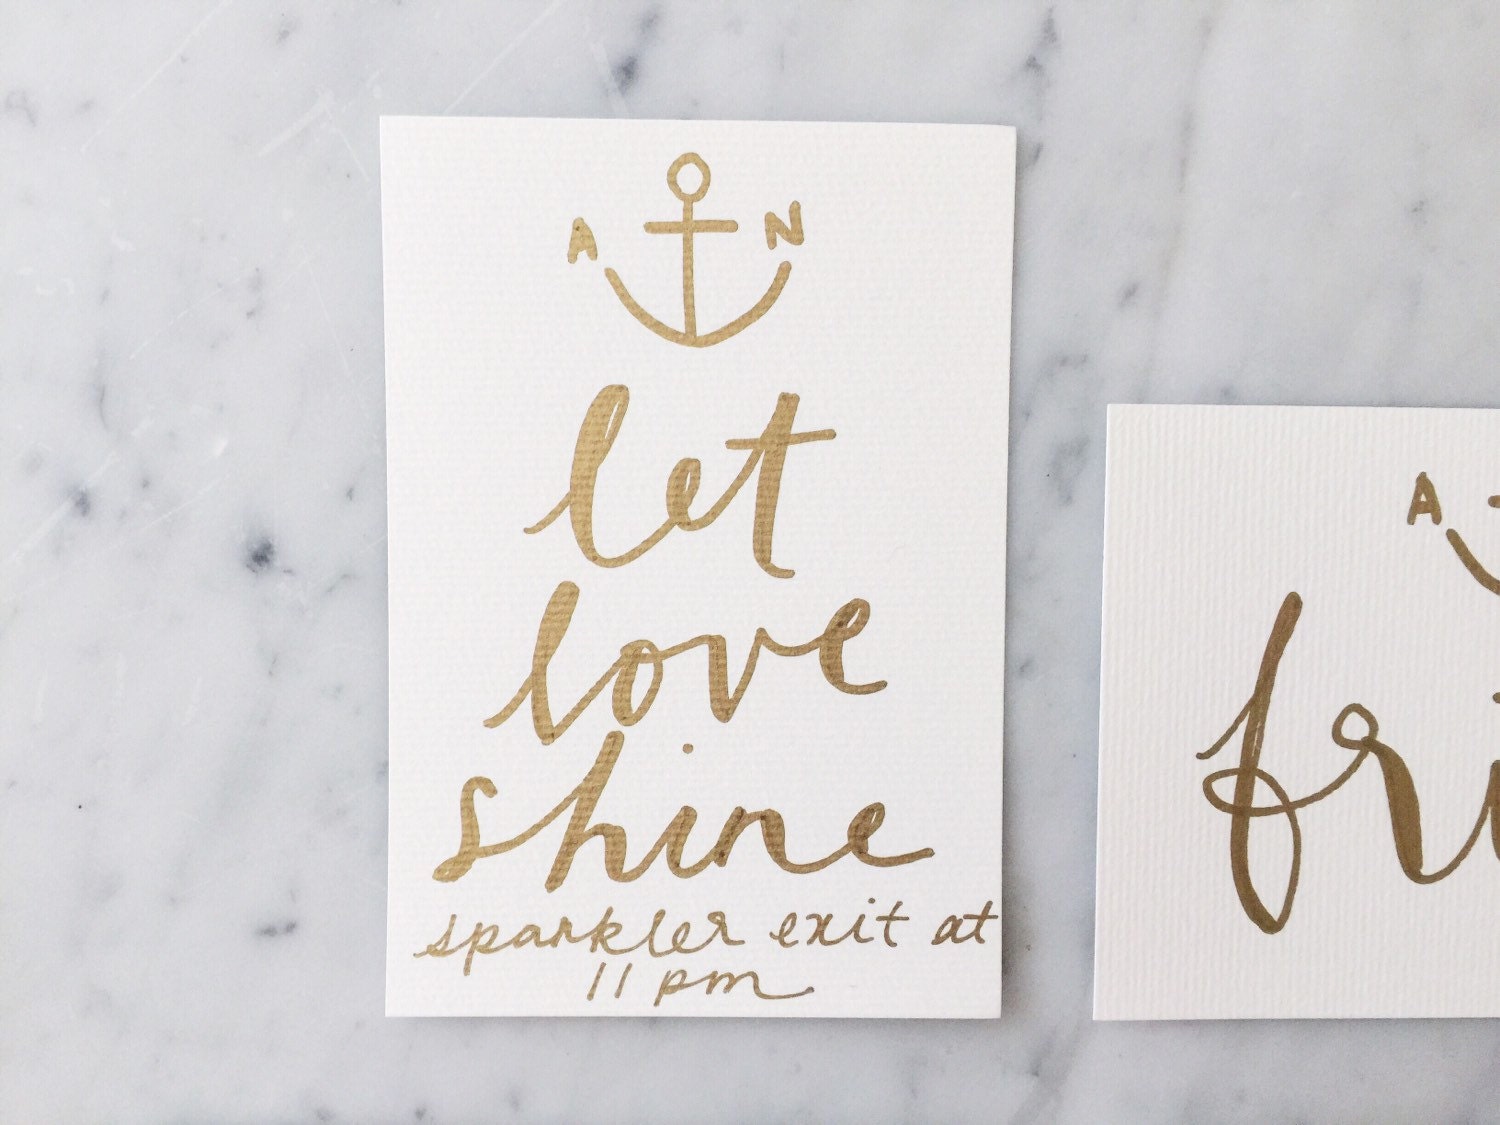 A N
let
love
shine
sparkler exit at
11 pm
A
fri